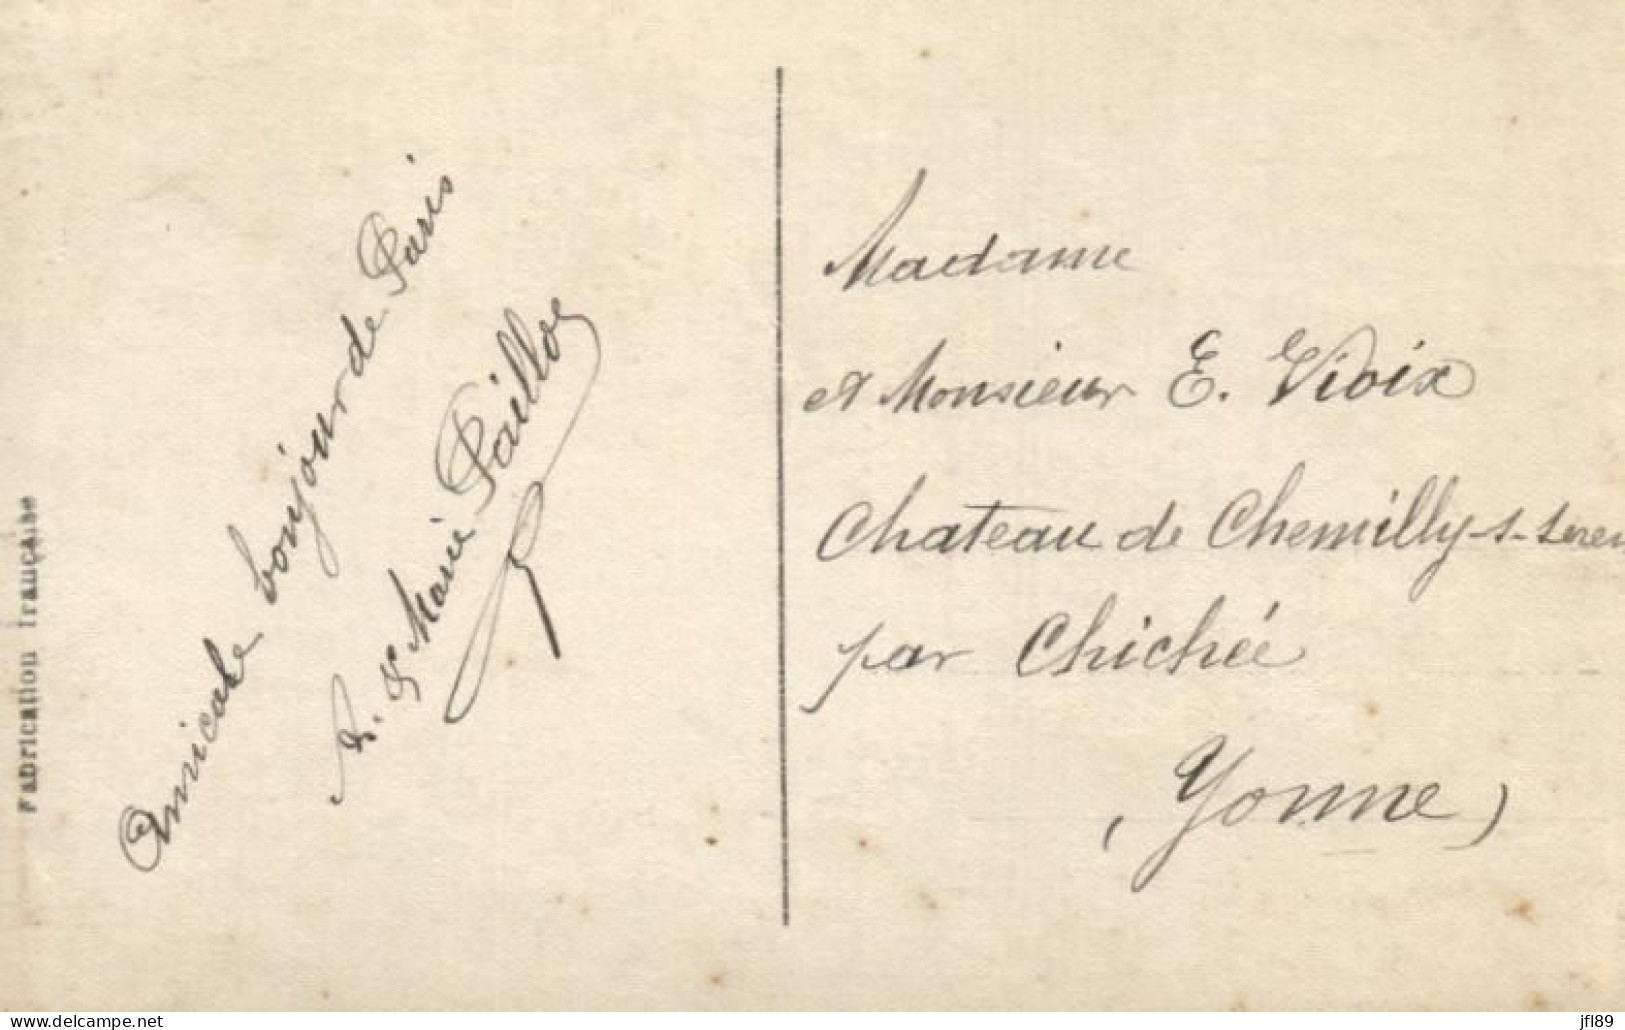 Fabrication française
Amicale bonjour de Paris
A. & Marie Paillot
Madame
et Monsieur E. Vioix
Chateau de Chemilly-s-Serein
par Chichée
(Yonne)
www.delcampe.net
jfl89